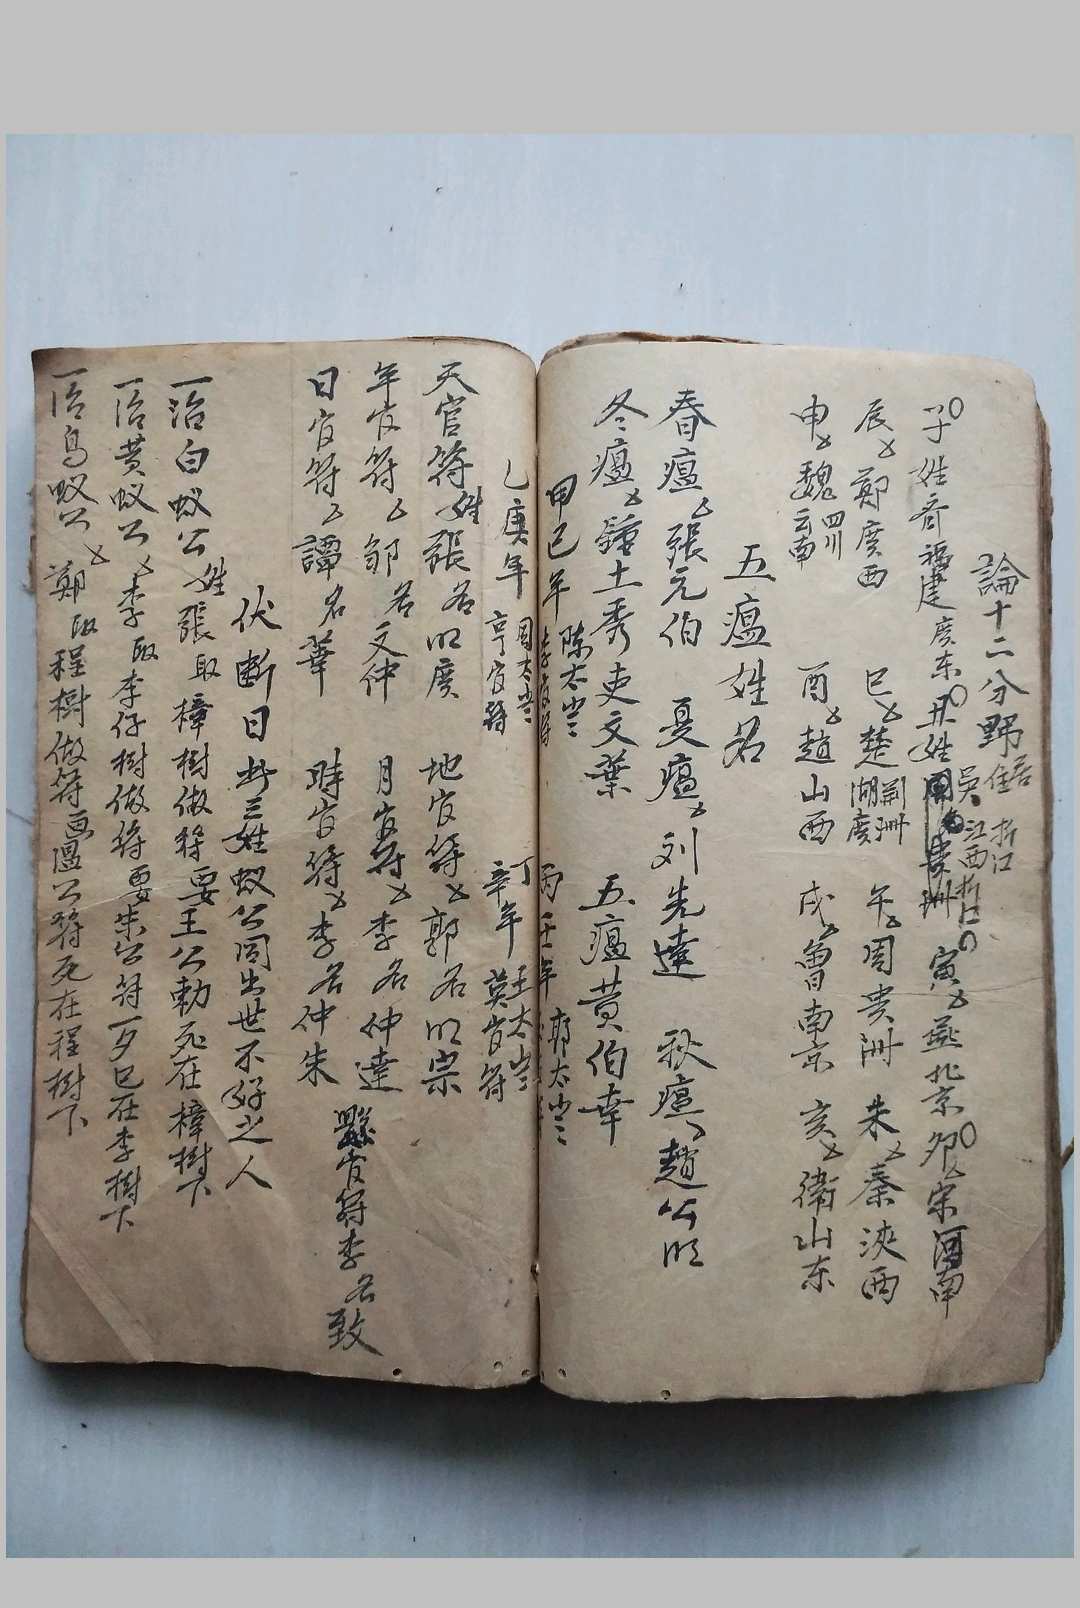 論十二分野
子姓齐福建廣东丑姓吳江西 寅〻燕北京卯〻宋河南
辰〻鄭廣西 巳〻楚荊洲湖廣 午〻周贵洲 未〻秦浹西
申〻魏四川云南 酉〻趙山西 戌〻魯南京 亥〻衛山东
五瘟姓名
春瘟〻張元伯 夏瘟〻刘先達 秋瘟〻趙公明
冬瘟〻鍾士秀史文葉 五瘟黄伯幸
甲己年 陈太岁 丙壬年 郭太岁
乙庚年 周太岁 辛年 王太岁 莫官符
天官符姓張名明廣 地官符〻郭名明宗
年官符〻邹名文仲 月官符〻李名仲達
日官符〻譚名華 時官符〻李名仲朱 縣官符李名致
伏断日 三姓蚁公同出世不好之人
一治白蚁公姓張取樟樹做符要王公勅死在樟樹下
一治黄蚁公〻李取李仔樹做符要朱公符一歹已在李樹下
一治烏蚁公〻鄭取程樹做符画瘟公符死在程樹下